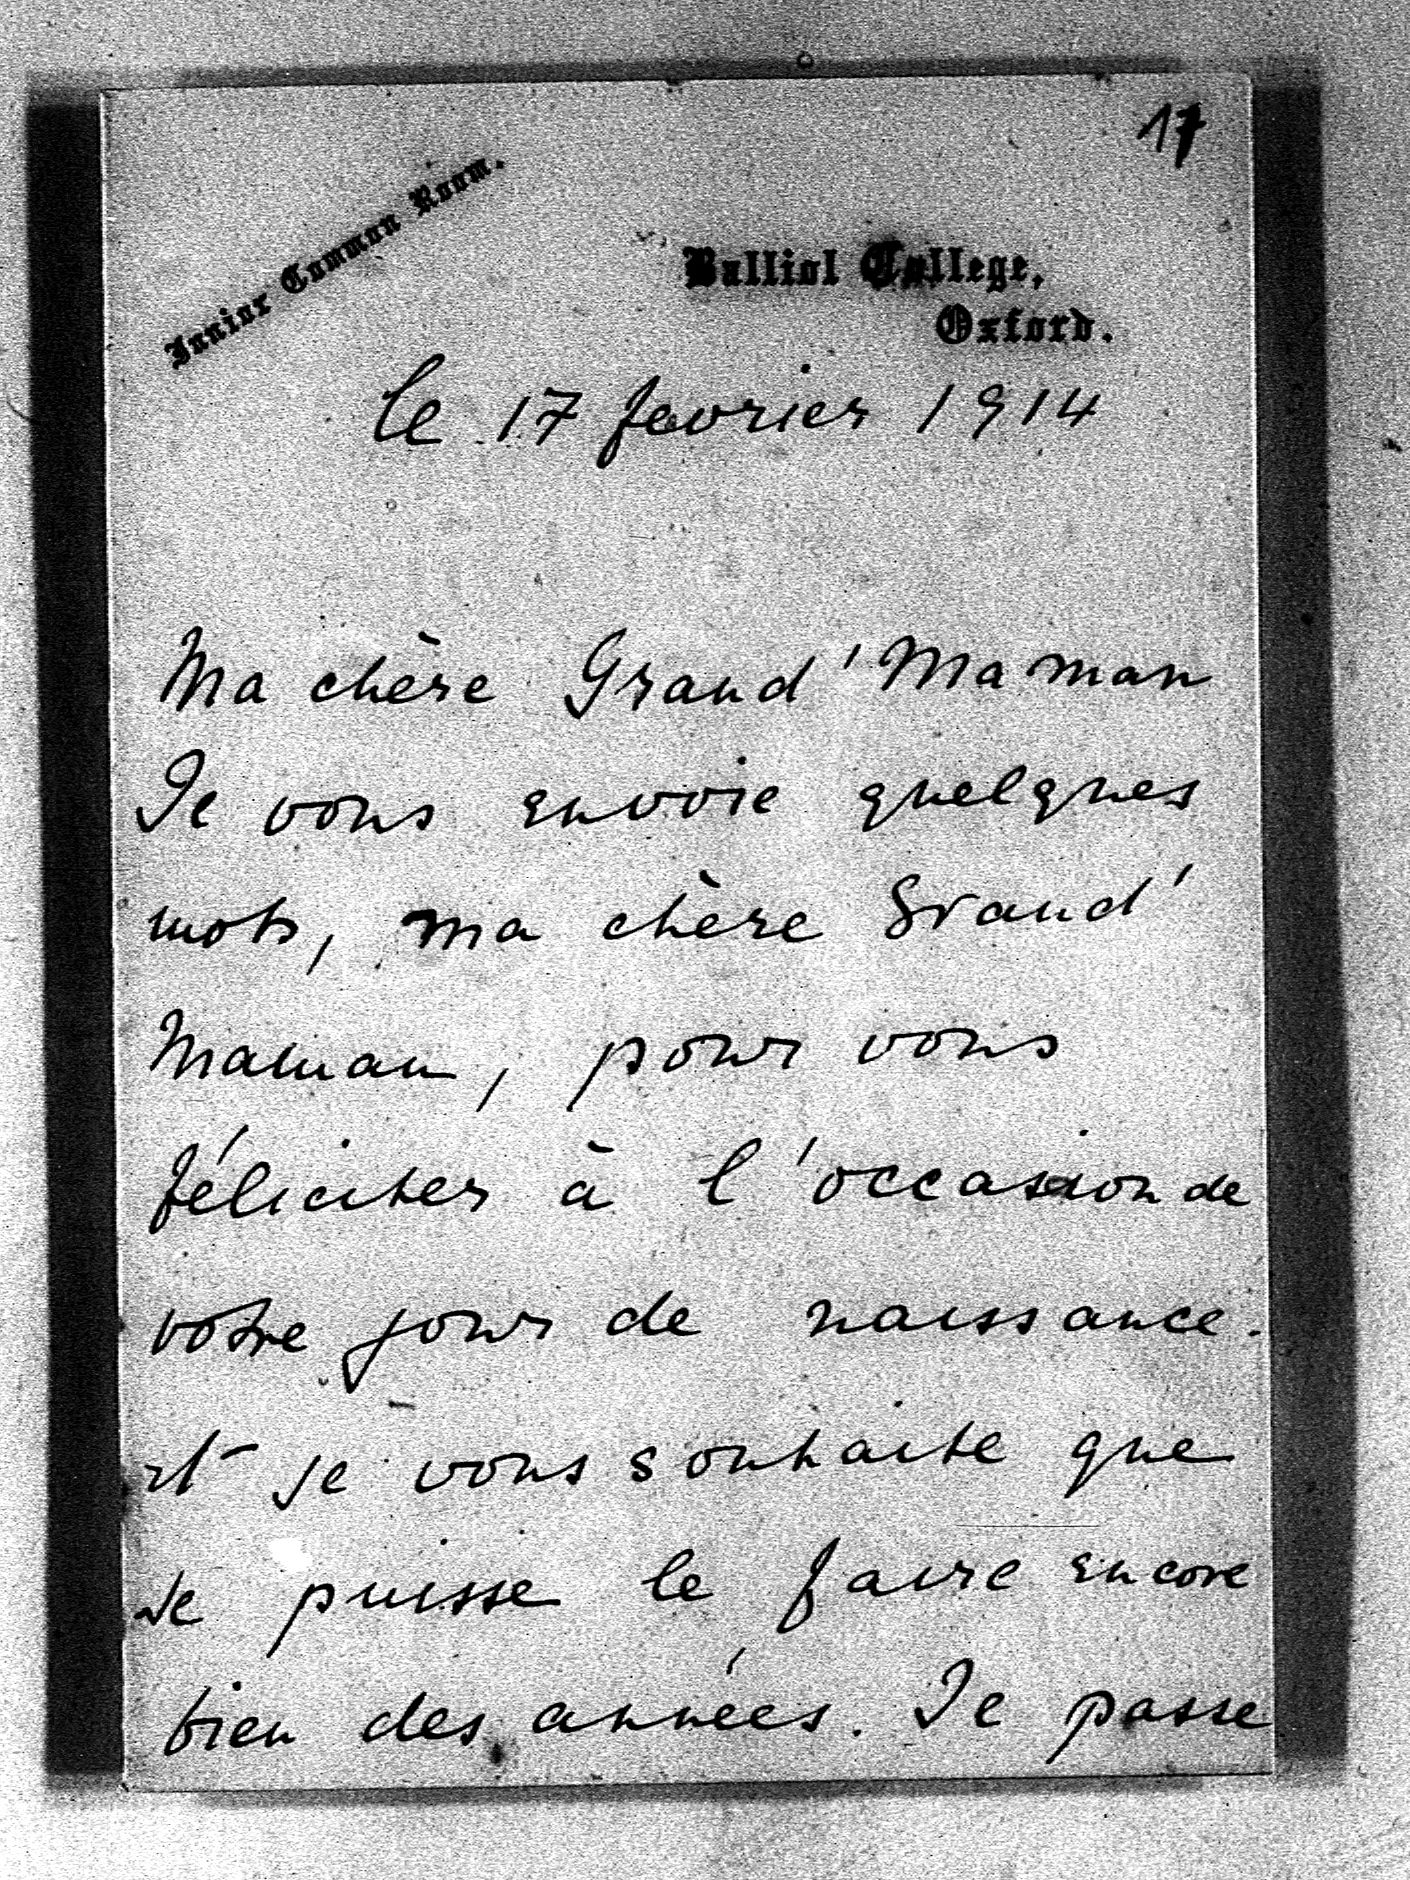 17
Junior Common Room.
Balliol College,
Oxford.
le 17 fevrier 1914
Ma chère Grand' Maman
Je vous envoie quelques
mots, ma chère Grand'
Maman, pour vous
féliciter à l'occasion de
votre jour de naissance.
et je vous souhaite que
Je puisse le faire encore
bien des années. Je passe